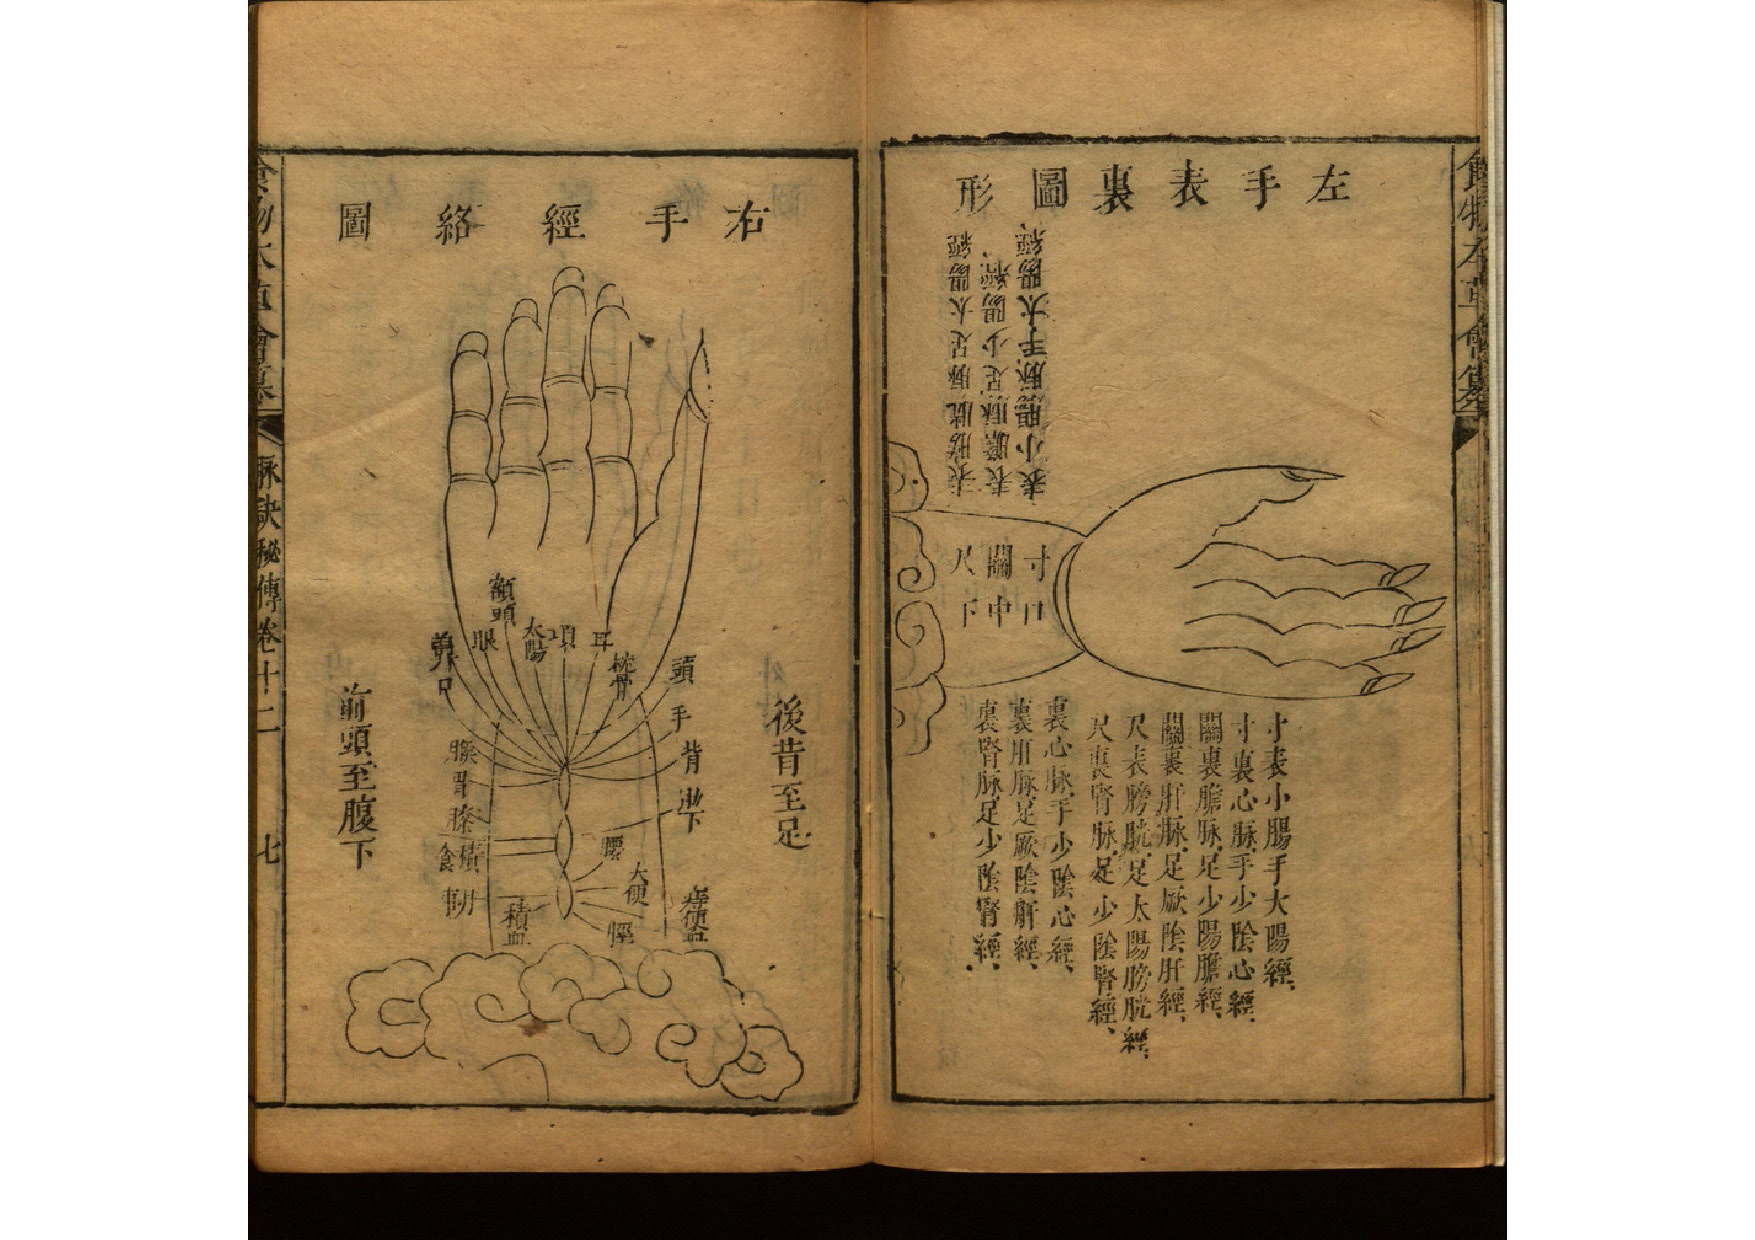 食物本草會纂
左手表裏圖形
表小腸脉手太陽經
表膽脉足少陽經
表膀胱脉足太陽經
寸口
關中
尺下
寸表小腸手太陽經、
寸裏心脉、手少陰心經、
關裏膽脉、足少陽膽經、
關裏肝脉、足厥陰肝經、
尺表膀胱、足太陽膀胱經、
尺裏腎脉、足少陰腎經、
裏心脉、手少陰心經、
裏肝脉、足厥陰肝經、
裏腎脉、足少陰腎經、
右手經絡圖
後背至足
頭
手
背
枕骨
耳
項
太陽
額頭
眼
鼻口
腰
大便
積血
前頭至腹下
食物本草會纂 脉訣秘傳卷十二 七